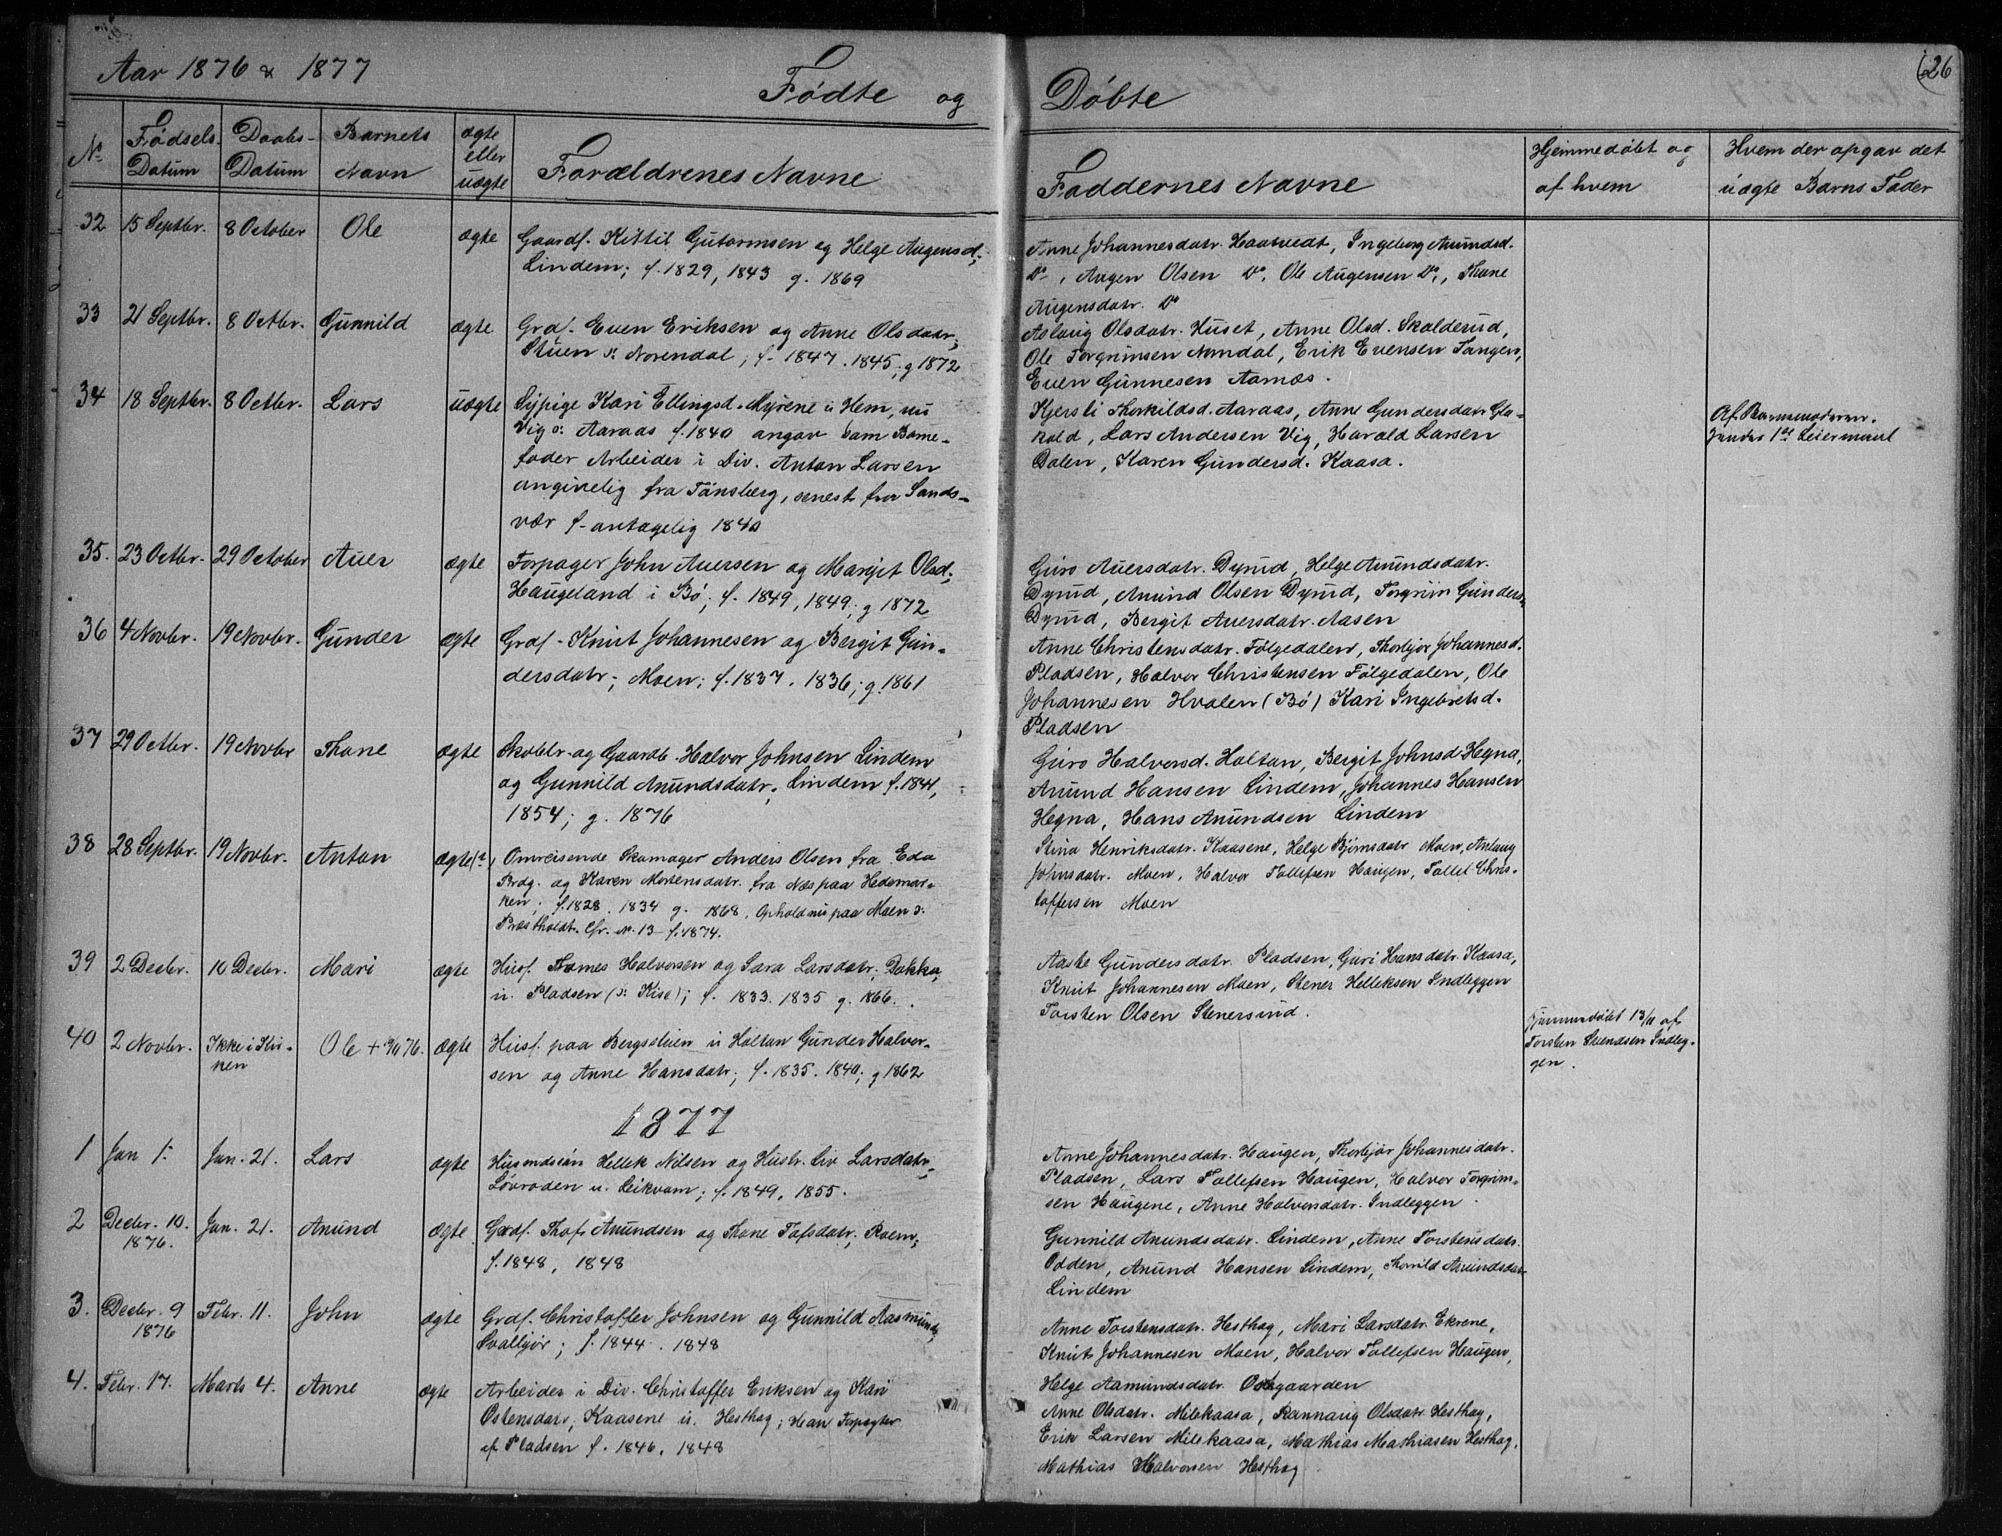 Aar 1876 & 1877
Fødte og Døbte
26
No
Fødsels Datum
Daabs-Datum
Barnets Navn
ægte eller uægte
Forældrenes Navne
Faddernes Navne
Hjemmedøbt og af hvem
Hvem der opgav det uægte Barns Fader
32 15 Septbr. 8 October Ole ægte Gaardf. Kittil Gutormsen og Helge Augensd;
Lindem; f. 1829, 1843 g. 1869
Anne Johannesdatr. Haatvedt, Ingeborg Anundsd.
Do, Augen Olsen Do, Ole Augensen Do, Thone
Augensdatr. Do
33 21 Septbr. 8 Octbr. Gunnild ægte Grdf. Even Eriksen og Anne Olsdatr;
Stuen o: Norendal; f. 1847. 1845; g 1872
Aslaug Olsdatr. Huset, Anne Olsd. Skalderud,
Ole Torgrimsen Nomdal, Erik Evensen Tangen,
Even Gunnesen Aarnæs.
34 18 Septbr. 8 Octbr. Lars uægte Sypige Kari Ellingsd. Myrene u Hem, nu
Vig o: Aaraas f. 1840 angav som Barne-
fader Arbeider i Div. Anton Larsen
angivelig fra Tønsberg, senest fra Sands-
vær f. antagelig 1840
Kjersti Thorkildsd. Aaraas, Anne Gundersdatr Gla-
kald, Lars Andersen Vig, Harald Larsen
Dalen, Karen Gundersd. Kaasa.
Af Barnemoderen.
1st Leiermaal
35. 23 Octbr. 29 October Auer ægte Forpagter John Auersen og Margit Olsd;
Haugeland i Bø; f. 1849, 1849; g 1872
Guro Auersdatr. Dyrud, Helge Anundsdatr.
Dyrud, Anund Olsen Dyrud, Torgrim Gunders-
Dyrud, Bergit Auersdatr. Aasen
36 4 Novbr. 19 Novbr. Gunder ægte Grdf. Knut Johannesen og Bergit Gun-
dersdatr; Moen; f. 1837. 1836; g. 1861
Anne Christensdatr. Følgedalen, Thorbjør Johannesd.
Pladsen, Halvor Christensen Følgedalen, Ole
Johannesen Hvalen (Bø) Kari Ingebretsd.
Pladsen
37 29 Octbr. 19 Novbr Thone ægte Skoblr. og Gaardb. Halvor Johnsen Lindem
og Gunnild Anundsdatr, Lindem f. 1841,
1854; g. 1876
Guro Halvorsd. Holtan, Bergit Johnsd Hegna,
Anund Hansen Lindem, Johannes Hansen
Hegna, Hans Anundsen Lindem
38 28 Septbr. 19 Novbr. Anton ægte(?) Omreisende Skomager Anders Olsen fra Eda
Prdg. og Karen Mortensdatr. fra Næs paa Hedemar-
ken; f. 1828. 1834 g. 1868, Ophold nu paa Moen o:
Præstholdt. Cfr. N. 13 f. 1874.
Stina Henriksdatr. Kaasene, Helge Bjørnsdatr Moen, Anlaug
Johnsdatr. Moen, Halvor Tollefsen Haugen, Tollef Chris-
toffersen Moen
39 2 Decbr. 10 Decbr. Mari ægte Husf. Thomes Halvorsen og Sara Larsdatr; Dokka,
u. Pladsen (o: Kise); f. 1833. 1835 g. 1866.
Aaste Gundersdatr. Pladsen, Guri Hansdatr. Kaasa,
Knut Johannesen Moen, Stener Helleksen Indleggen
Torsten Olsen Stenersrud.
40 2 Novbr. Ikke i Kir-
ken Ole + 76. ægte Husf. paa Bergsstuen u Holtan Gunder Halvor-
sen og Anne Hansdatr; f. 1835. 1840; g 1862
Hjemmedøbt 13/11 af
Torsten Svendsen Indleg-
gen.
1877
1 Jan 1. Jan. 21. Lars ægte Husmdsøn Hellek Nilsen og Hustr. Liv Larsdatr,
Løvroden u. Leikvam; f. 1849, 1855.
Anne Johannesdatr. Haugen, Thorbjør Johannesdatr.
Pladsen, Lars Tollefsen Haugen, Halvor Torgrim-
sen Haugene, Anne Halvorsdatr. Indleggen
2 Decbr. 10. 1876. Jan. 21. Anund ægte Grdf. Thof Anundsen og Thone Tofsdatr; Roem;
f. 1848, 1848
Gunnild Anundsdatr. Lindem, Anne Torstensdatr.
Odden, Anund Hansen Lindem, Thorild Anundsdatr
Lindem
3. Decbr. 9 1876 Febr. 11. John ægte Grdf. Christoffer Johnsen og Gunnild Aasmunds,
Svalljør; f. 1844. 1848
Anne Torstensdatr. Hesthag, Mari Larsdatr. Ekrene,
Knut Johannesen Moen, Halvor Tollefsen Haugen,
Helge Aamundsdatr. Ostegaarden
4. Febr. 17. Marts 4. Anne ægte Arbeider i Div. Christoffer Eriksen og Kari
Ostensdatr, Kaasene u. Hesthag; Han Forpagter
af Pladsen f. 1846, 1848
Anne Olsdatr. Milekaasa, Rannaug Olsdatr Hesthag,
Erik Larsen Milekaasa, Mathias Mathiasen Hesthag,
Mathias Halvorsen Hesthag